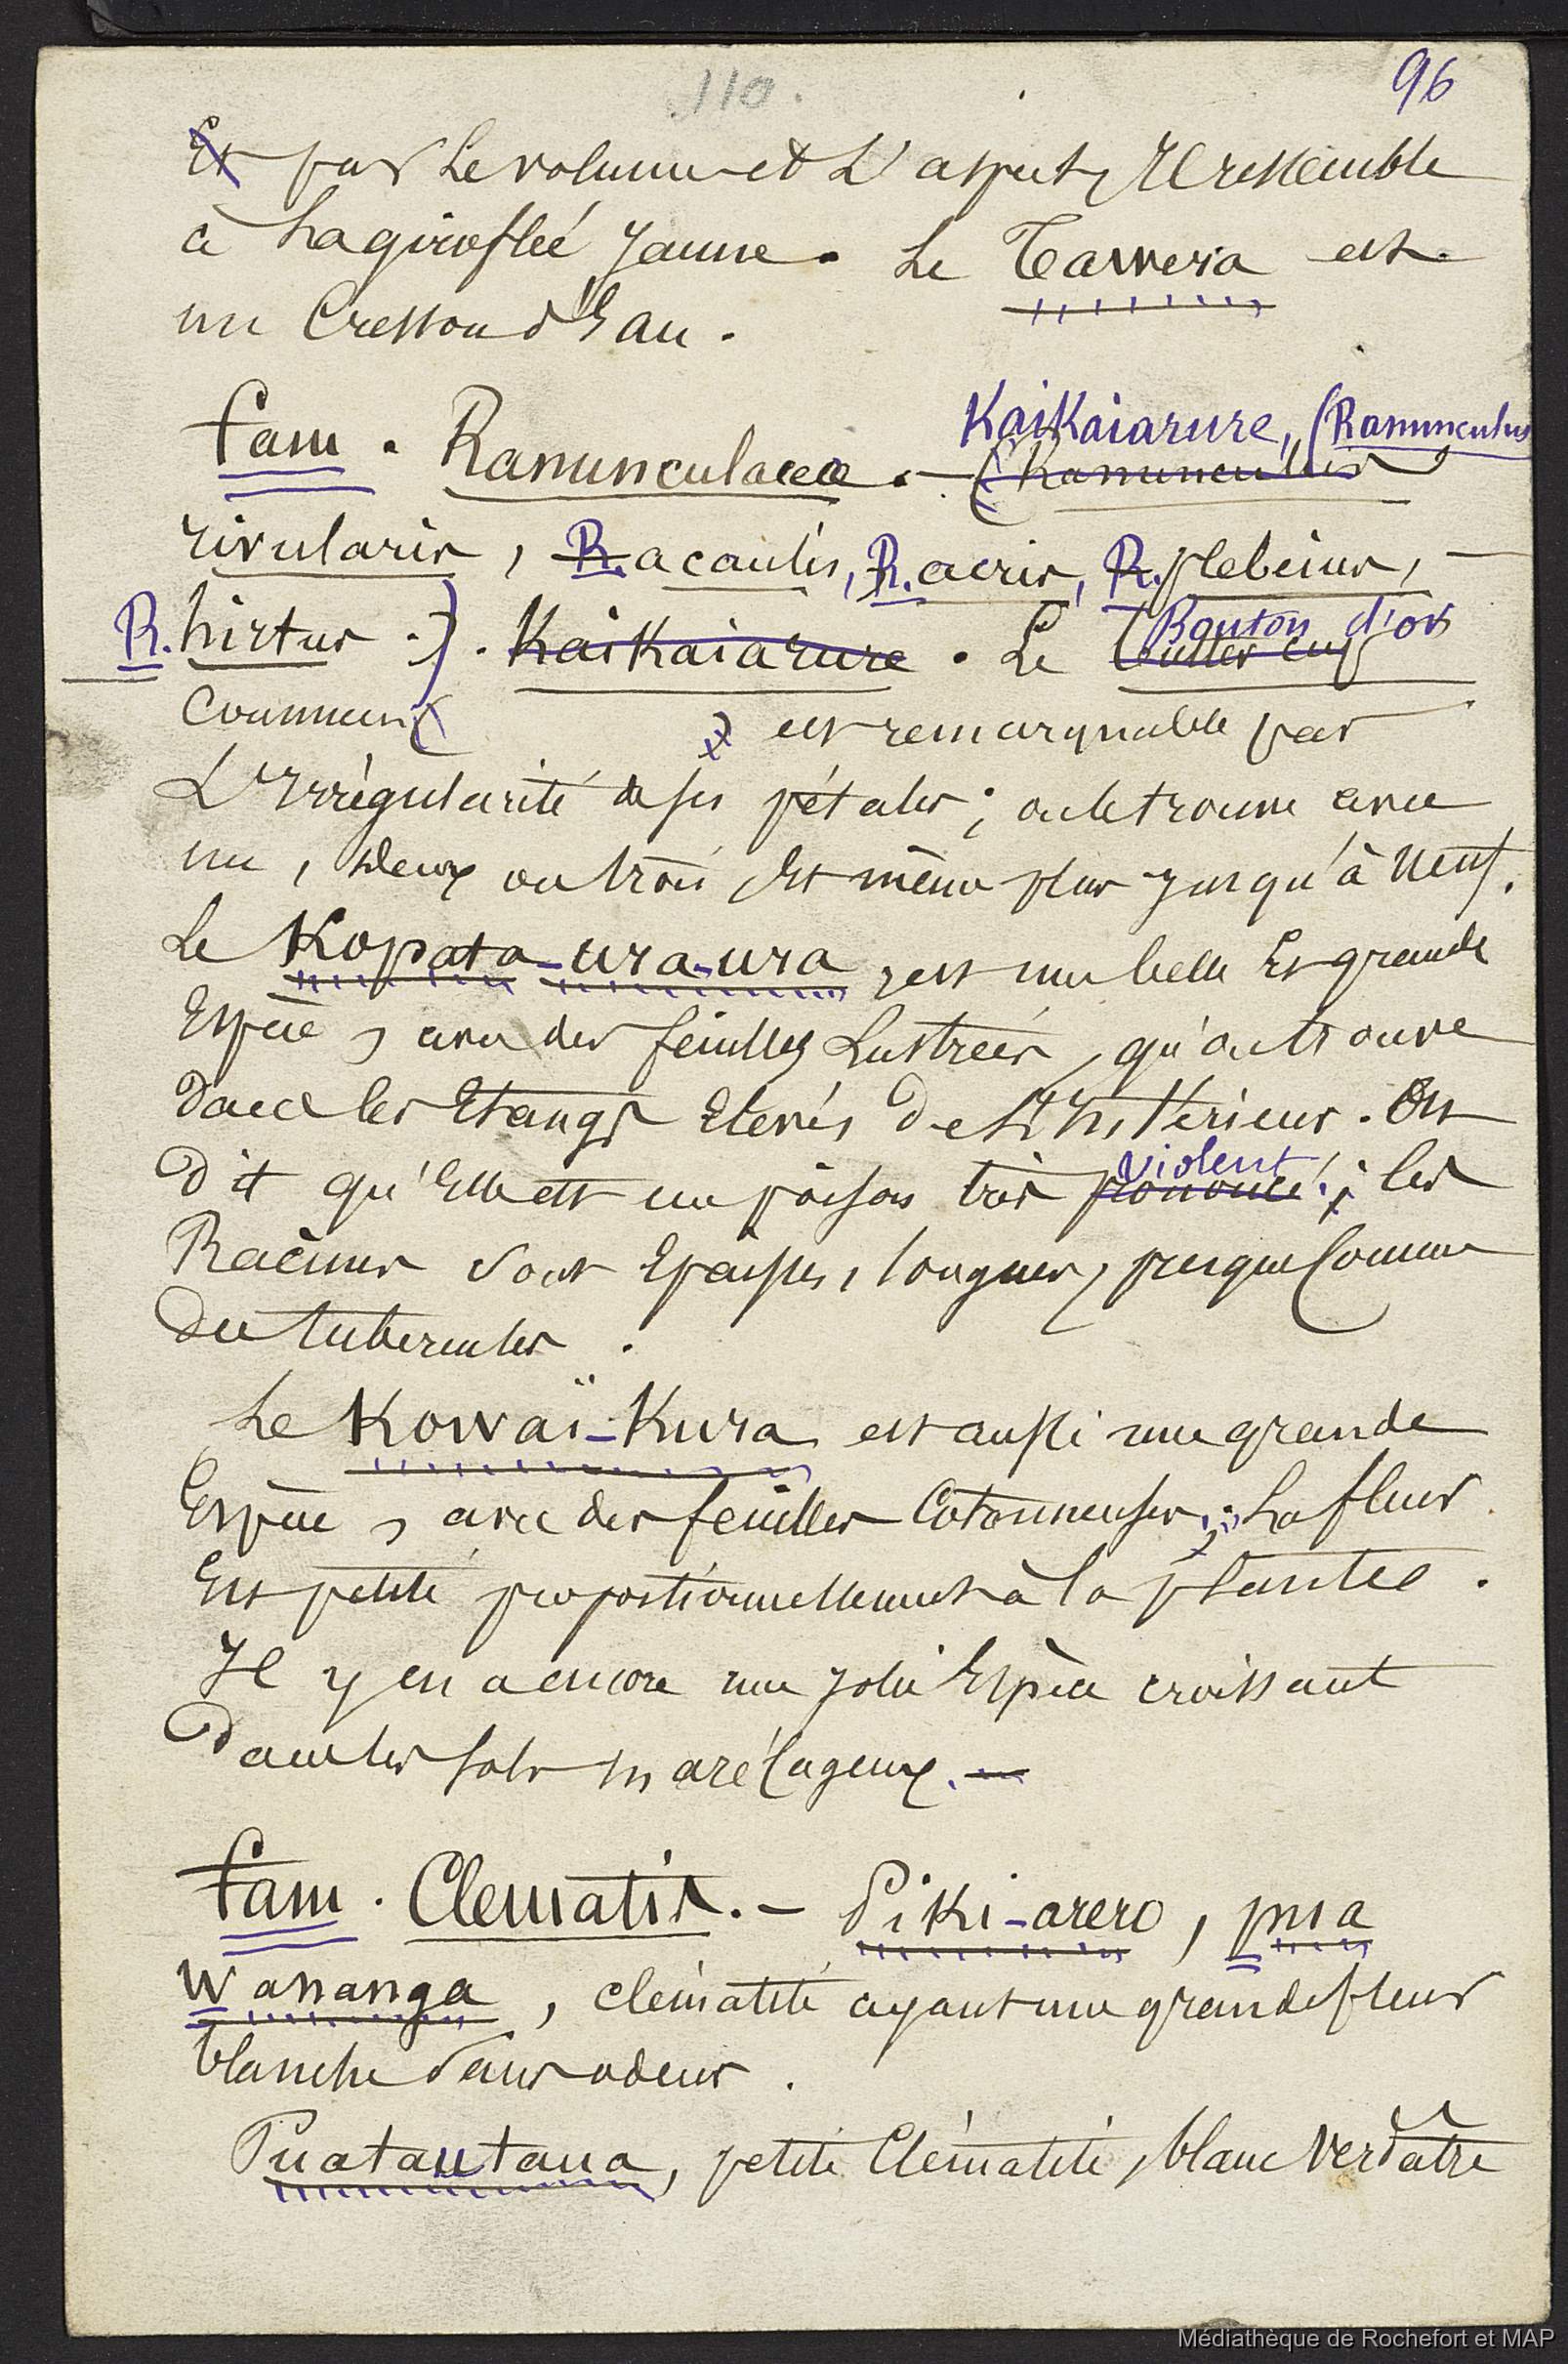 110.
96
Et par Le volume et L'aspect, Il ressemble
à La giroflée Jaune. Le Tawera est
un Cresson d'Eau.
Kaikaiarure, (Ranunculus
Fam. Ranunculaceæ. — (Ranunculus
rivularis, R. acaulis, R. acris, R. plebeius, —
R. hirtus.). Kaikaiarure. Le Butter cup
Bouton d'or
Commun est remarquable par
L'Irrégularité de ses pétales; on le trouve avec
un, deux ou trois Et même plus jusqu'à Neuf.
Le Kopata-ura-ura, est une belle Et grande
Espèce, avec des feuilles Lustrées, qu'on trouve
Dans les Etangs Elevés De L'Intérieur. On
violent
Dit qu'Elle est un poison très prononcé; les
Racines sont Epaisses, longues, presque Comme
Des tubercules.
Le Kowaï-Kura est aussi une grande
Espèce, avec des feuilles Cotonneuses; La fleur
Est petite proportionnellement à la plante.
Il y en a encore une jolie Espèce croissant
Dans les sols marécageux. —
Fam. Clematis. — Piki-arero, pua
Wananga, clématite ayant une grande fleur
blanche sans odeur.
Puatautaua, petite Clématite, blanc verdâtre
Médiathèque de Rochefort et MAP